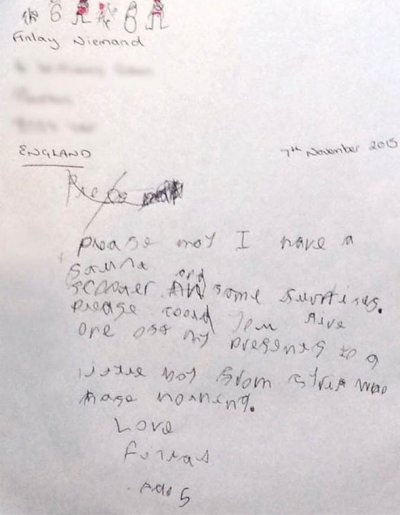 Finlay Niemand
ENGLAND
7th November 2015
please may I have a
and
scooter some surprises.
please could you give
one off my presents to a
little boy from Syria who
hase nothing.
Love
Finlay
Age 5